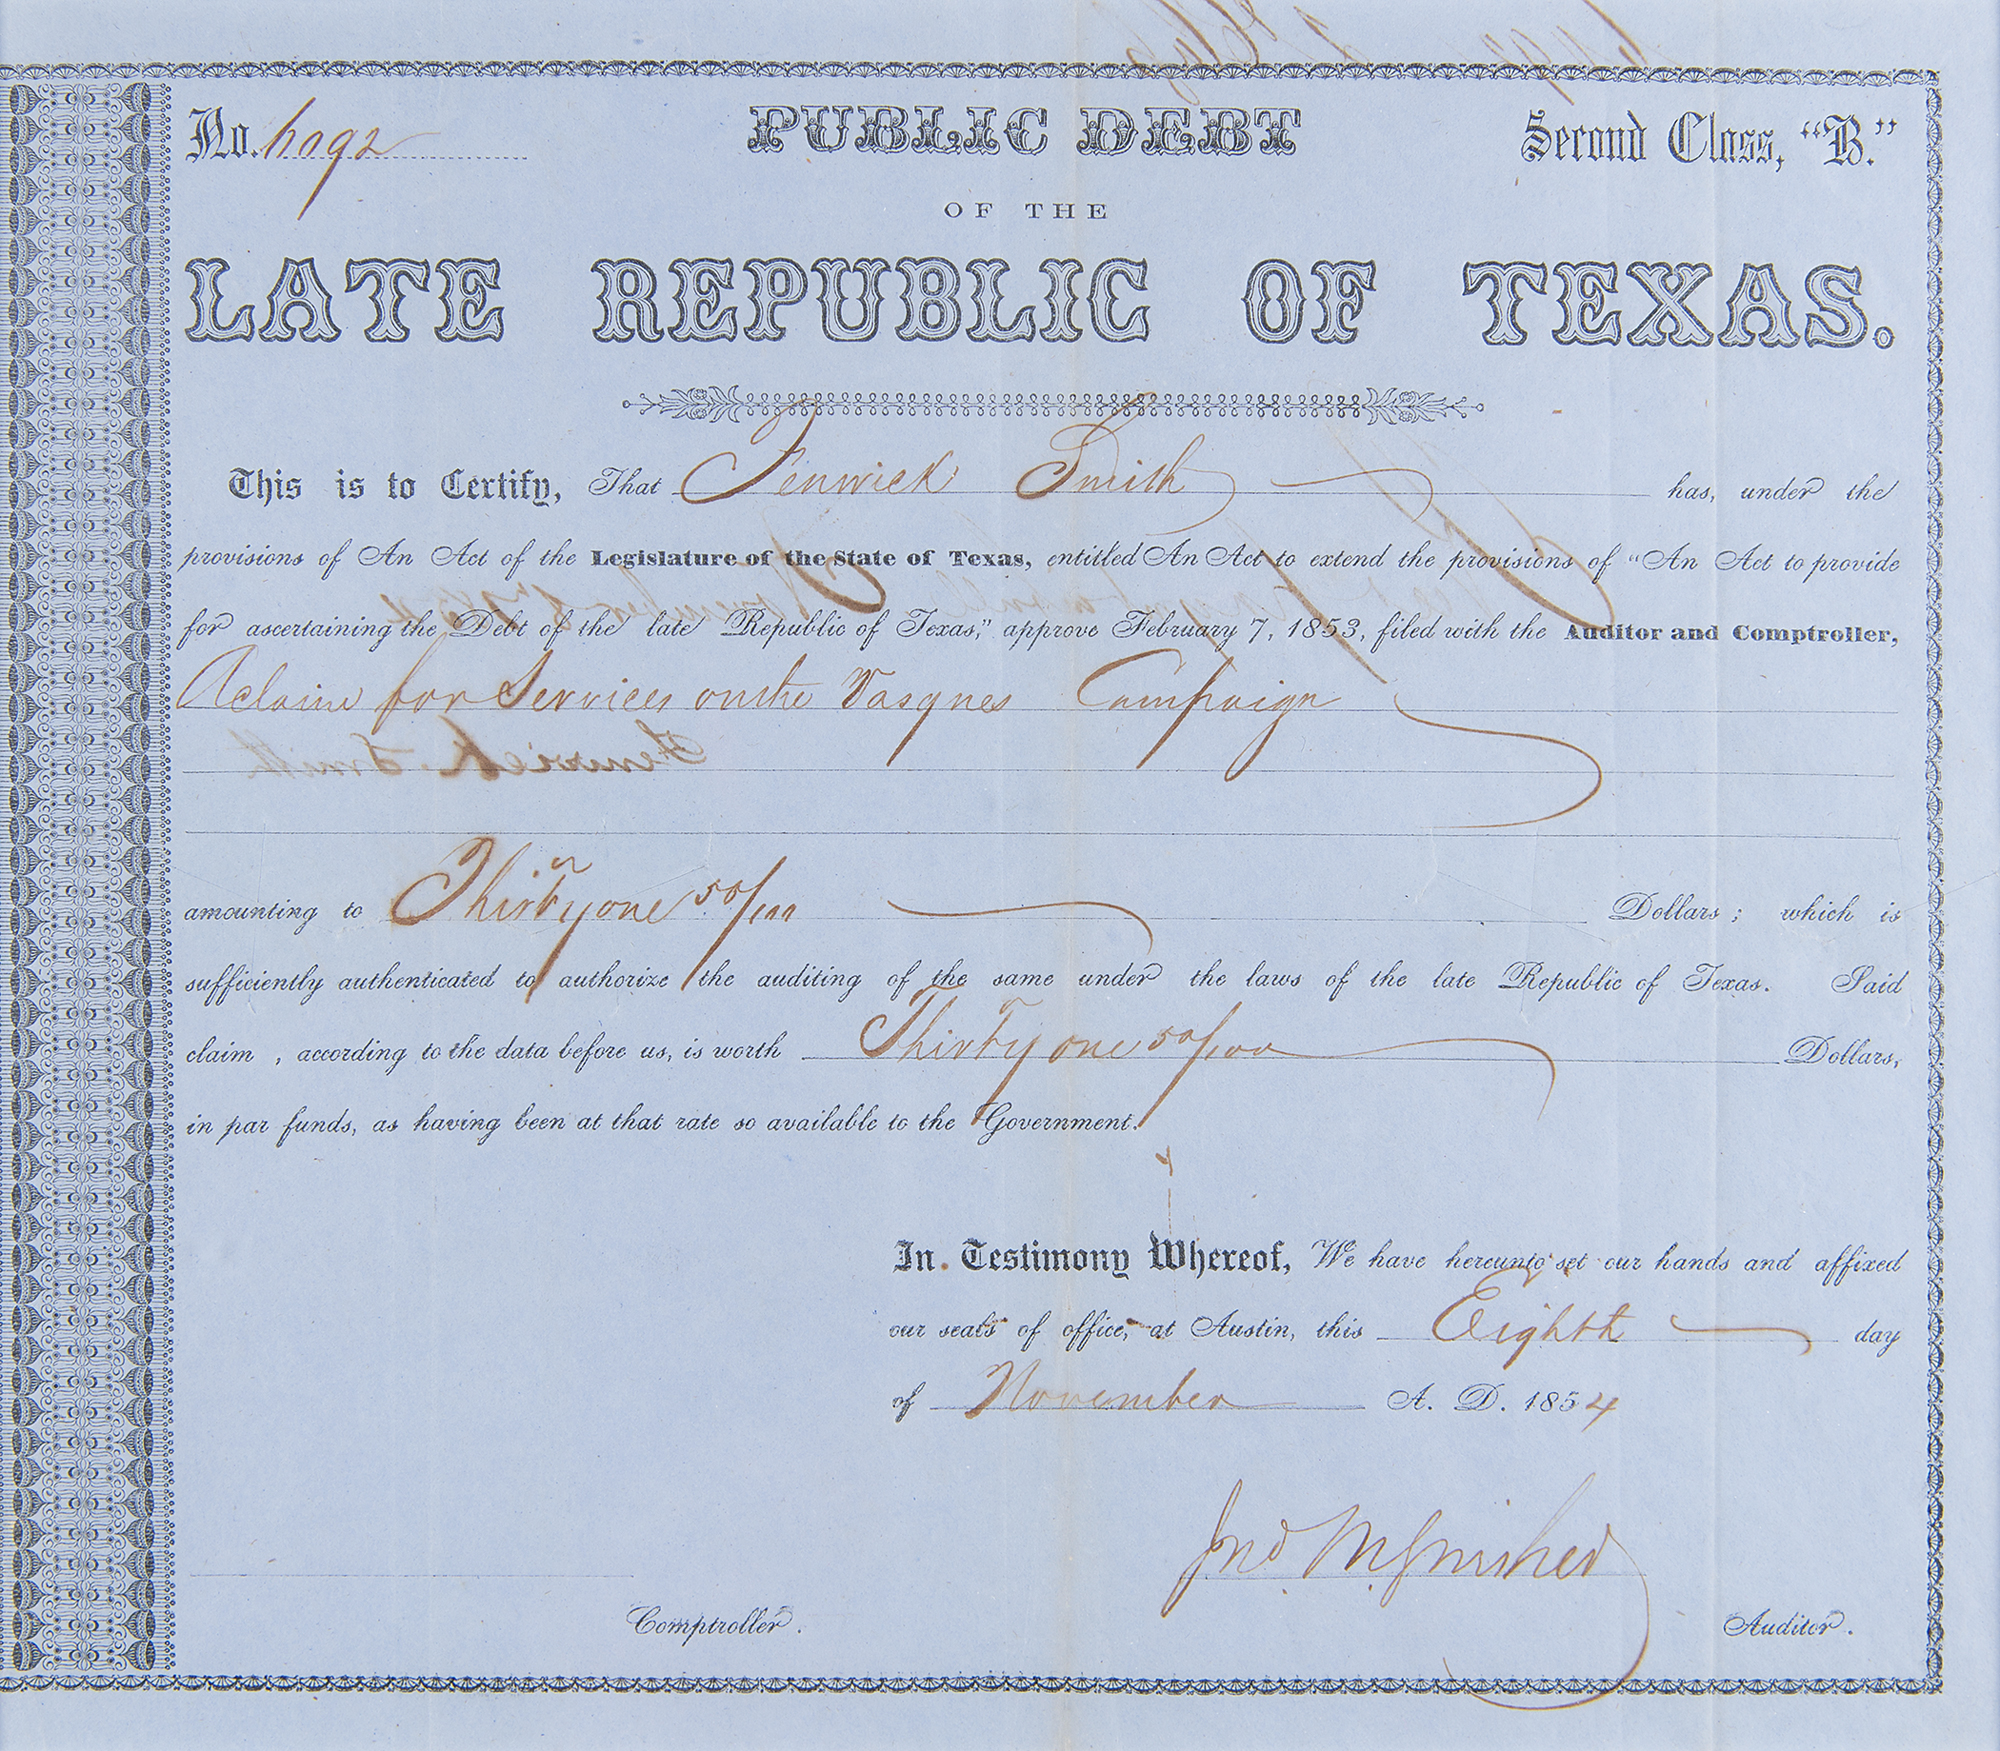 No. 6092
PUBLIC DEBT
Second Class, "B."
OF THE
LATE REPUBLIC OF TEXAS.
This is to Certify, That Fenwick Smith has, under the
provisions of An Act of the Legislature of the State of Texas, entitled An Act to extend the provisions of "An Act to provide
for ascertaining the Debt of the late Republic of Texas," approve February 7, 1853, filed with the Auditor and Comptroller,
A claim for Services on the Vasques Campaign
Fenwick Smith
amounting to Thirty one 50/100 Dollars; which is
sufficiently authenticated to authorize the auditing of the same under the laws of the late Republic of Texas. Said
claim, according to the data before us, is worth Thirty one 50/100 Dollars,
in par funds, as having been at that rate so available to the Government.
In Testimony Whereof, We have hereunto set our hands and affixed
our seals of office, at Austin, this Eighth day
of November A. D. 1854
Jno. M. Swisher
Comptroller.
Auditor.